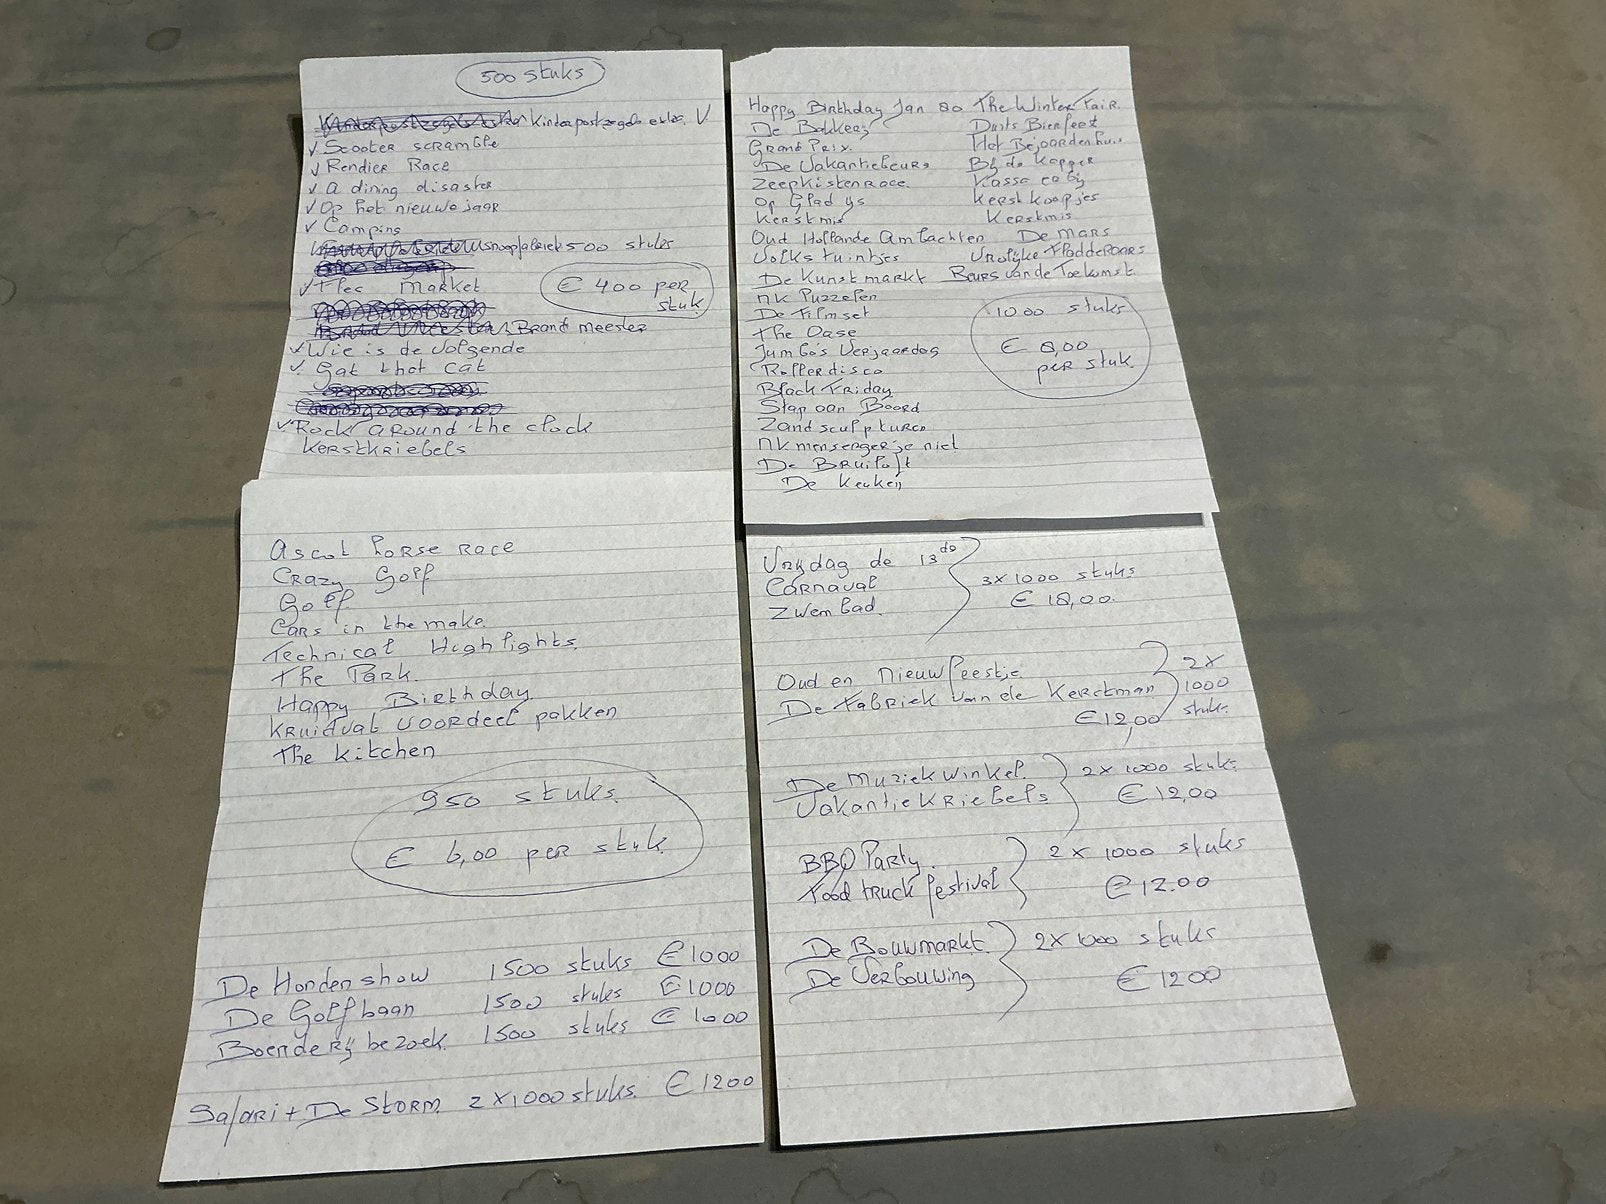 500 stuks
Kinderpostzegels extra. V
√ Scooter scramble
√ Rendier Race
√ A dining disaster
√ Op het nieuwe jaar
√ Camping
snoepfabriek 500 stuks
√ Flea Market
€ 400 per
stuk
Brand meester
√ Wie is de volgende
√ Gat that cat
√ Rock around the clock
Kerstkriebels
Happy Birthday Jan 80
De Bakkerij
Grand Prix.
De Vakantiebeurs
Zeepkistenrace
Op Glad ijs
Kerstmis
Oud Hollande Ambachten
Volkstuintjes
De Kunstmarkt
nk Puzzelen
De Filmset
The Oase
Jumbo's Verjaardag
Rollerdisco
Black Friday
Stap aan Boord
Zandsculpturen
nk mensergerje niet
De Bruiloft
De Keuken
The Winter Fair.
Duits Bierfeest
Het Bejaardenhuis
Bij de Kapper
Kassa
Kerst koopjes
Kerstmis
De Mars
Vrolijke Fladderaars
Beurs van de Toekomst.
1000 stuks
€ 8,00
per stuk.
Ascot horse race
Crazy Golf
Golf.
Cars in the make.
Technical Highlights.
The Park.
Happy Birthday.
Kruidvat voordeel pakken
The kitchen
950 stuks.
€ 6,00 per stuk.
De Hondenshow 1500 stuks €1000
De Golfbaan 1500 stuks €1000
Boerderij bezoek. 1500 stuks €1000
Safari + De Storm. 2 x 1000 stuks. €1200
Vrijdag de 13de
Carnaval
Zwembad.
3 x 1000 stuks
€ 18,00.
Oud en nieuwfeestje
De Fabriek van de Kerstman
2x
1000
stuks.
€12,00
De Muziekwinkel.
Vakantiekriebels
2 x 1000 stuks.
€ 12,00
BBQ Party.
Food truck festival
2 x 1000 stuks
€ 12.00
De Bouwmarkt.
De Verbouwing
2 x 1000 stuks
€ 1200